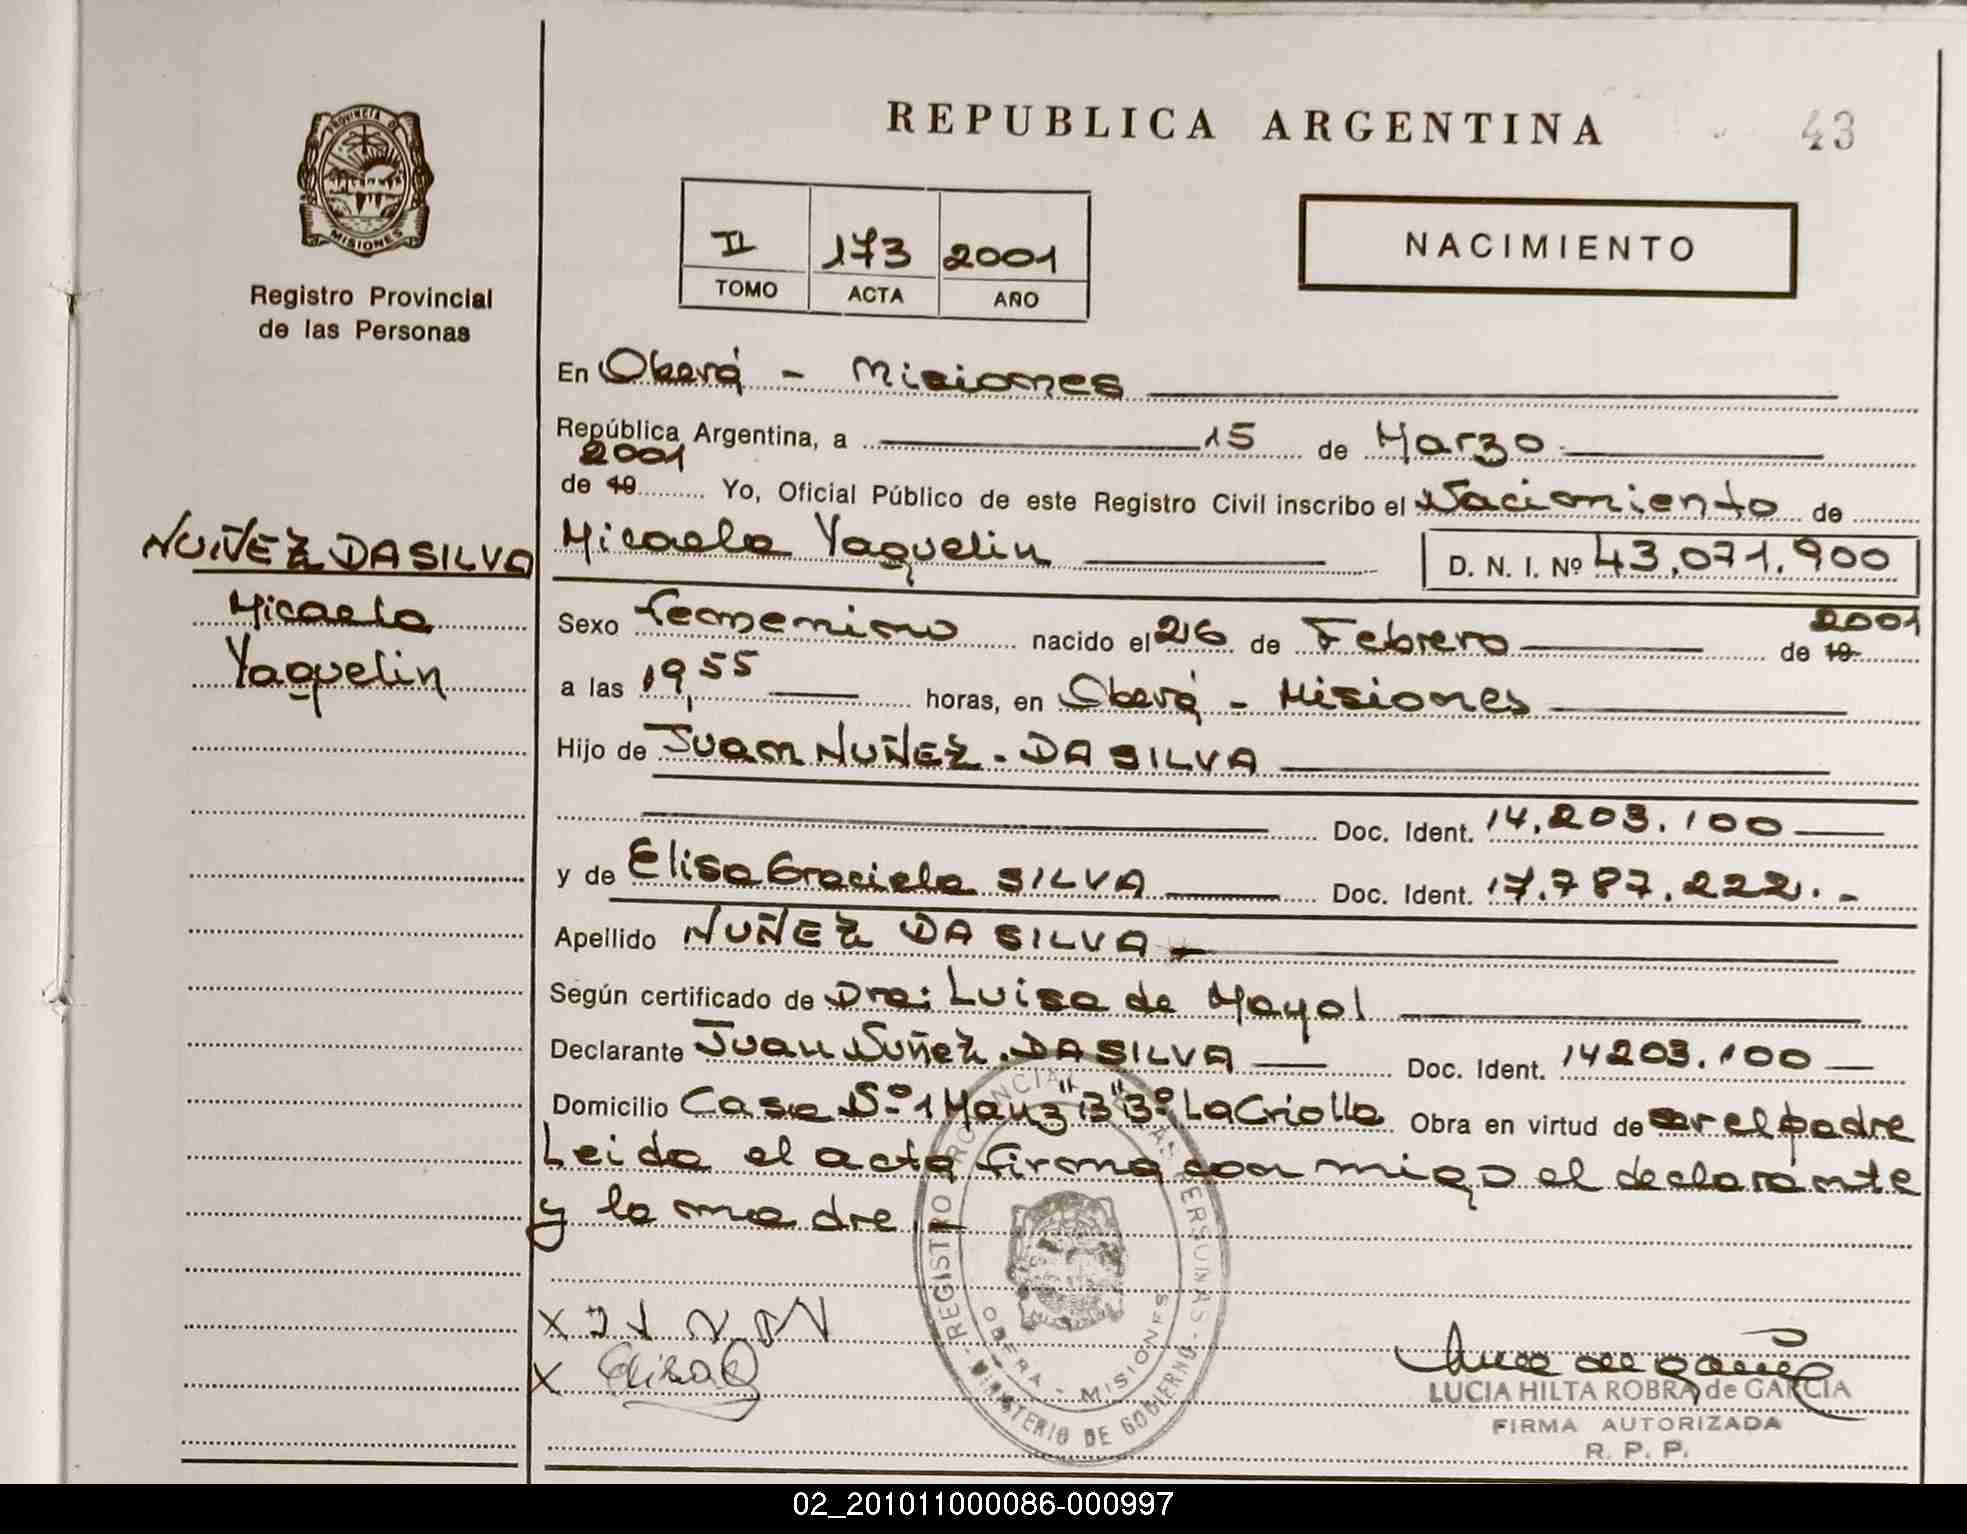 REPUBLICA ARGENTINA
43
PROVINCIA DE
MISIONES
Registro Provincial
de las Personas
II 173 2001
TOMO ACTA AÑO
NACIMIENTO
En Oberá - Misiones
República Argentina, a 15 de Marzo
2001
de 19 Yo, Oficial Público de este Registro Civil inscribo el Nacimiento de
NUÑEZ DA SILVA
Micaela
Yaquelin
Micaela Yaquelin D. N. I. Nº 43.071.900
2001
Sexo femenino nacido el 26 de Febrero de 19
a las 19,55 horas, en Oberá - Misiones
Hijo de Juan NUÑEZ - DA SILVA
Doc. Ident. 14.203.100
y de Elisa Graciela SILVA Doc. Ident. 17.787.222.-
Apellido NUÑEZ DA SILVA
Según certificado de Dra: Luisa de Mayol
Declarante Juan Nuñez. DA SILVA Doc. Ident. 14203.100
Domicilio Casa Nº 1 Manz "B" Bº La Criolla Obra en virtud de ser el padre
Leida el acta firma con migo el declarante
y la madre.-
REGISTRO PROVINCIAL DE LAS PERSONAS
OBERA - MISIONES
- MINISTERIO DE GOBIERNO -
X
X Elisa
LUCIA HILTA ROBRA de GARCIA
FIRMA AUTORIZADA
R. P. P.
02_201011000086-000997